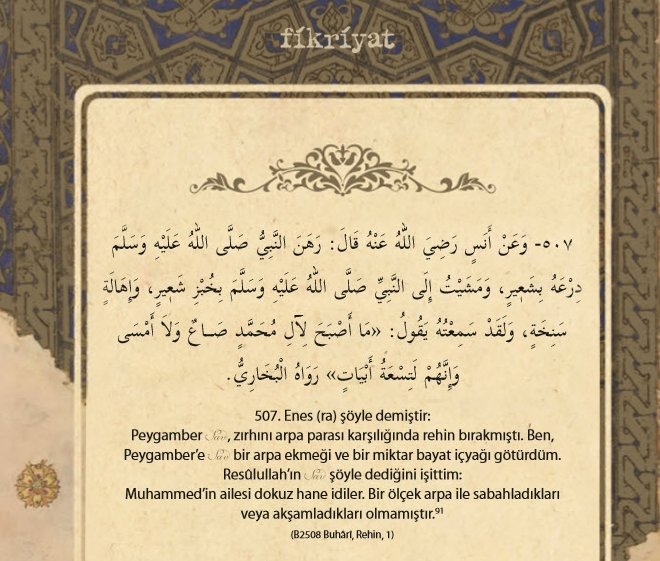 fikriyat
٥٠٧- وَعَنْ أَنَسٍ رَضِيَ اللهُ عَنْهُ قَالَ: رَهَنَ النَّبِيُّ صَلَّى اللهُ عَلَيْهِ وَسَلَّمَ
دِرْعَهُ بِشَعِيرٍ، وَمَشَيْتُ إِلَى النَّبِيِّ صَلَّى اللهُ عَلَيْهِ وَسَلَّمَ بِخُبْزِ شَعِيرٍ، وَإِهَالَةٍ
سَنِخَةٍ، وَلَقَدْ سَمِعْتُهُ يَقُولُ: «مَا أَصْبَحَ لِآلِ مُحَمَّدٍ صَاعٌ وَلاَ أَمْسَى
وَإِنَّهُمْ لَتِسْعَةُ أَبْيَاتٍ» رَوَاهُ الْبُخَارِيُّ.
507. Enes (ra) şöyle demiştir:
Peygamber Sav, zırhını arpa parası karşılığında rehin bırakmıştı. Ben,
Peygamber'e Sav bir arpa ekmeği ve bir miktar bayat içyağı götürdüm.
Resûlullah'ın Sav şöyle dediğini işittim:
Muhammed'in ailesi dokuz hane idiler. Bir ölçek arpa ile sabahladıkları
veya akşamladıkları olmamıştır.⁹¹
(B2508 Buhârî, Rehin, 1)